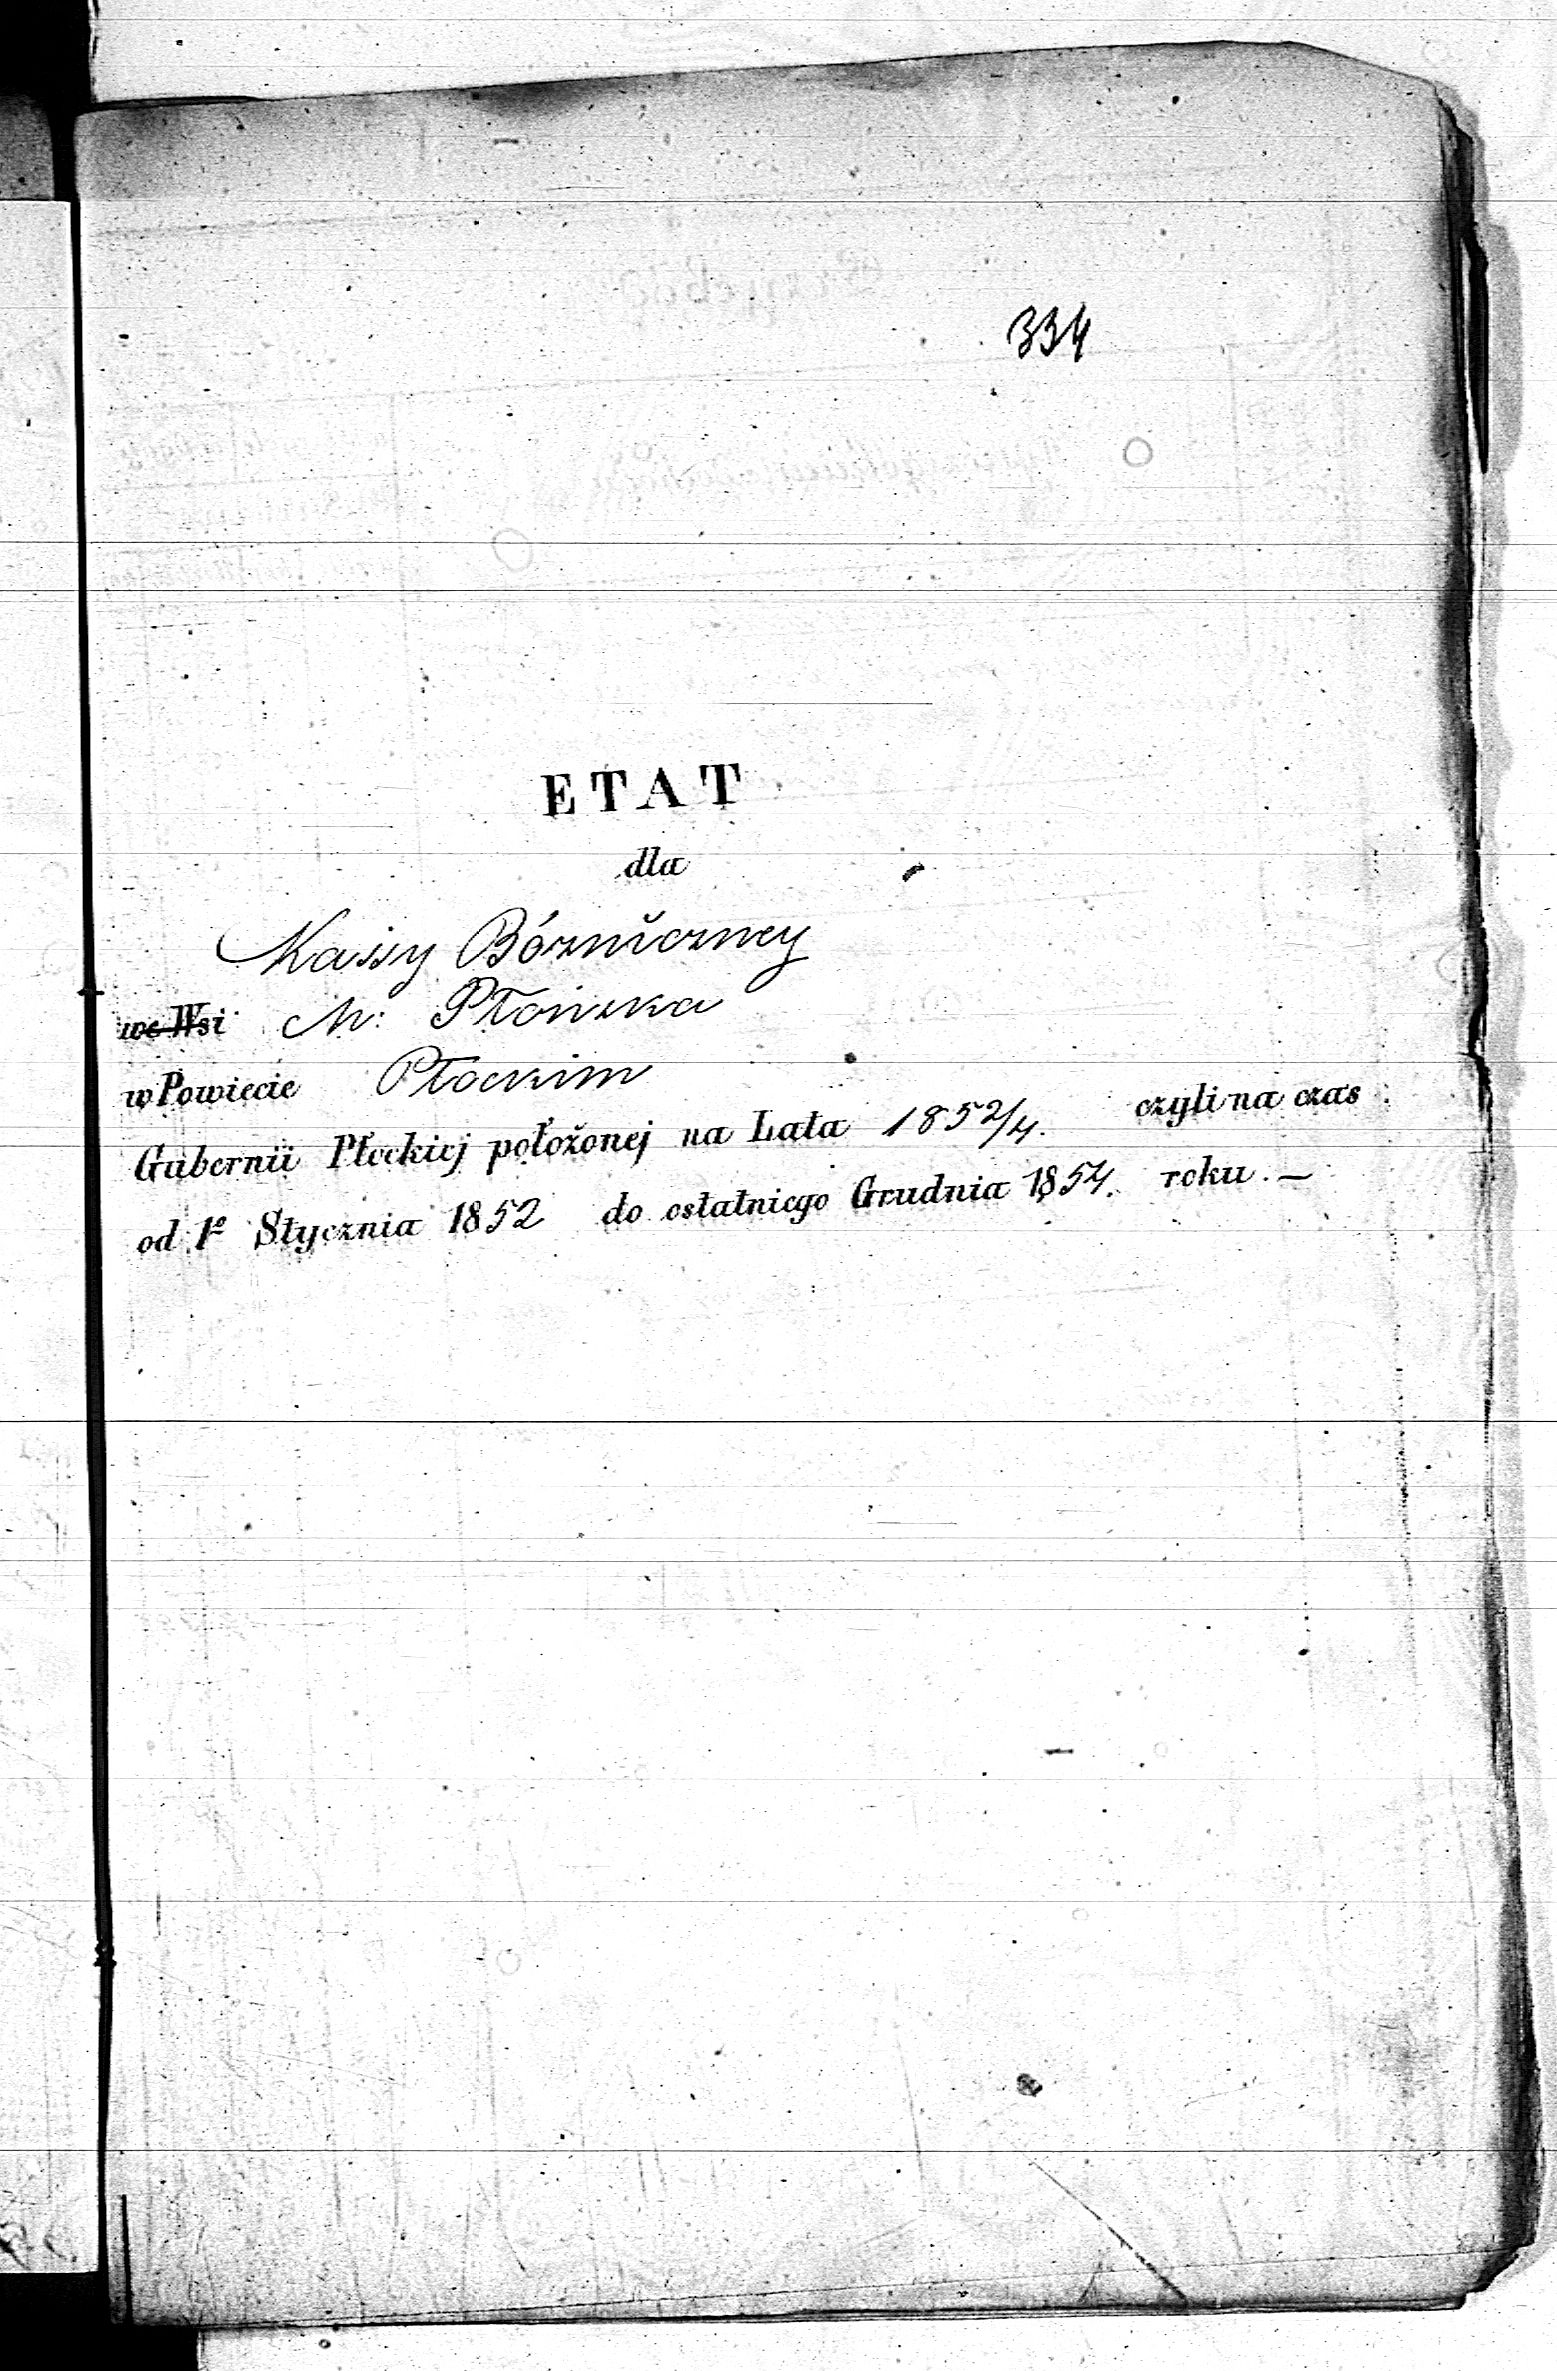 334
ETAT
dla
Kassy Bóźniczney
we Wsi M: Płońska
w Powiecie Płockim
Gubernii Płockiej położonej na Lata 1852/4. czyli na czas
od 1º Stycznia 1852 do ostatniego Grudnia 1854. roku. —